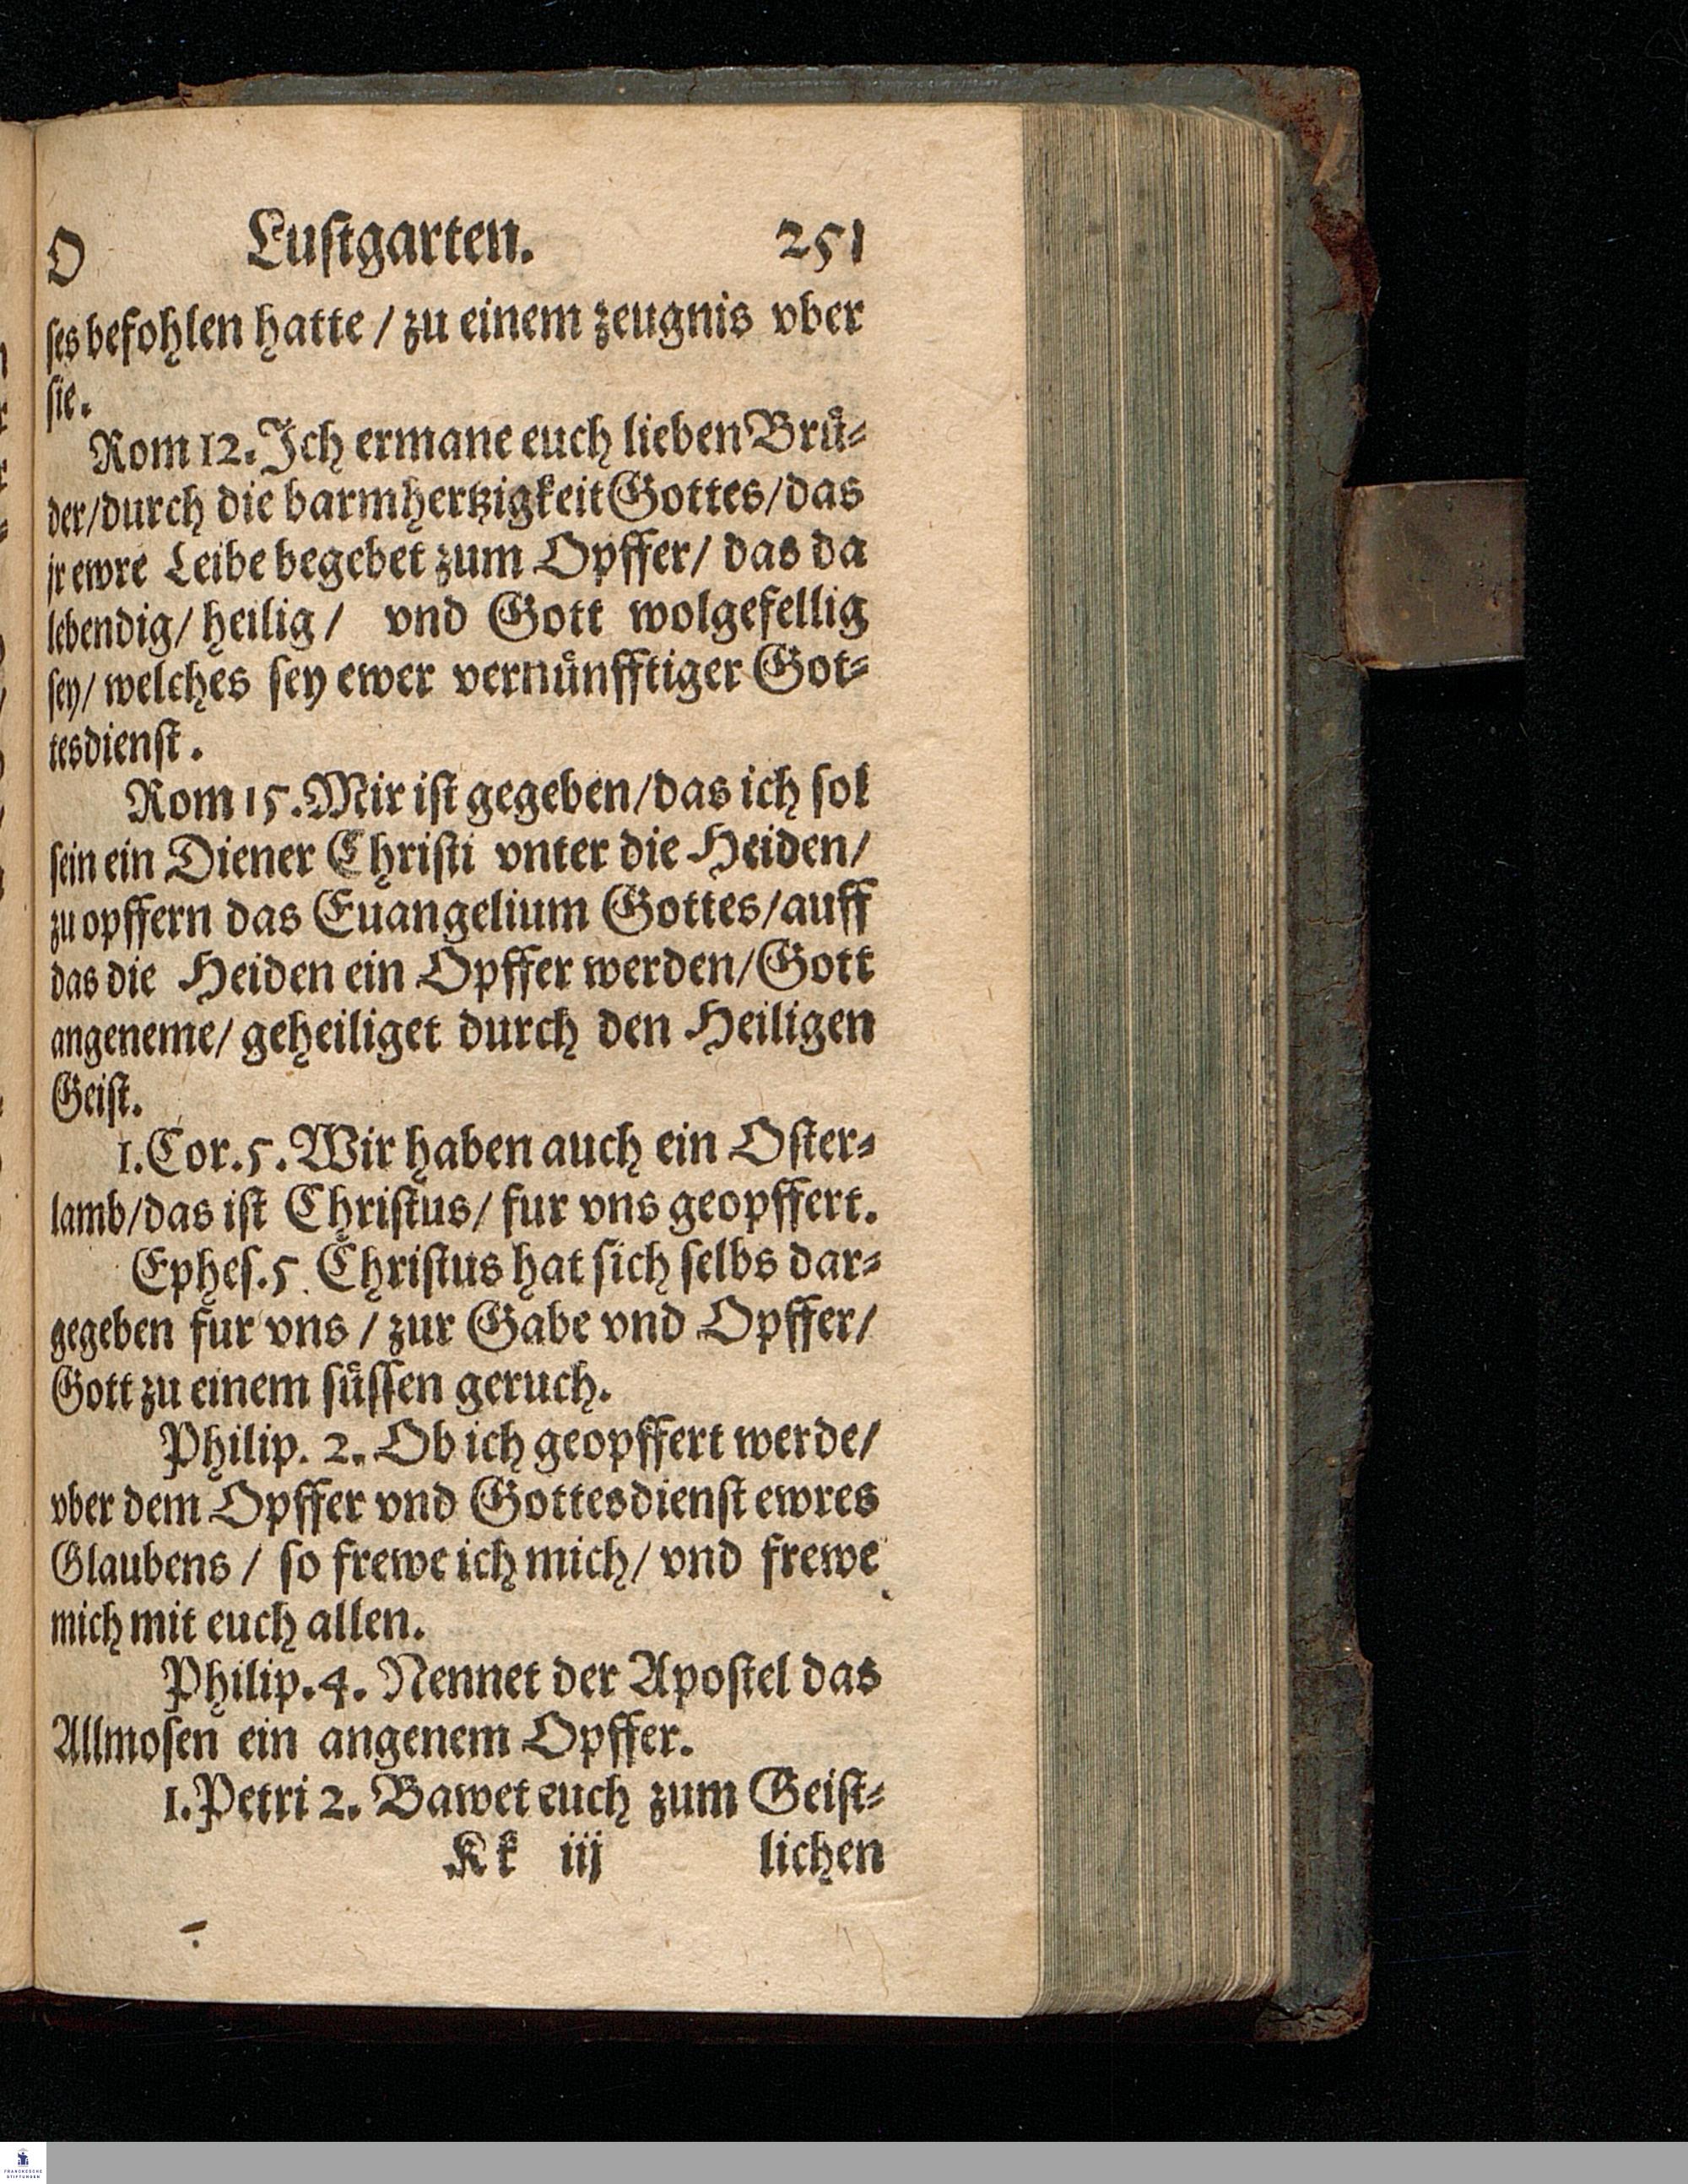 O Lustgarten. 251
ses befohlen hatte / zu einem zeugnis vber
sie.
Rom 12. Ich ermane euch lieben Bruͤ⸗
der/durch die barmhertzigkeit Gottes/das
jr ewre Leibe begebet zum Opffer/ das da
lebendig/ heilig / vnd Gott wolgefellig
sey/ welches sey ewer vernuͤnfftiger Got⸗
tesdienst.
Rom 15. Mir ist gegeben/das ich sol
sein ein Diener Christi vnter die Heiden/
zu opffern das Euangelium Gottes/auff
das die Heiden ein Opffer werden/Gott
angeneme/ geheiliget durch den Heiligen
Geist.
1. Cor. 5. Wir haben auch ein Oster⸗
lamb/das ist Christus/ fur vns geopffert.
Ephes. 5. Christus hat sich selbs dar⸗
gegeben fur vns / zur Gabe vnd Opffer/
Gott zu einem suͤssen geruch.
Philip. 2. Ob ich geopffert werde/
vber dem Opffer vnd Gottesdienst ewres
Glaubens / so frewe ich mich/ vnd frewe
mich mit euch allen.
Philip. 4. Nennet der Apostel das
Allmosen ein angenem Opffer.
1. Petri 2. Bawet euch zum Geist⸗
Kk iij lichen
FRANCKESCHE
STIFTUNGEN